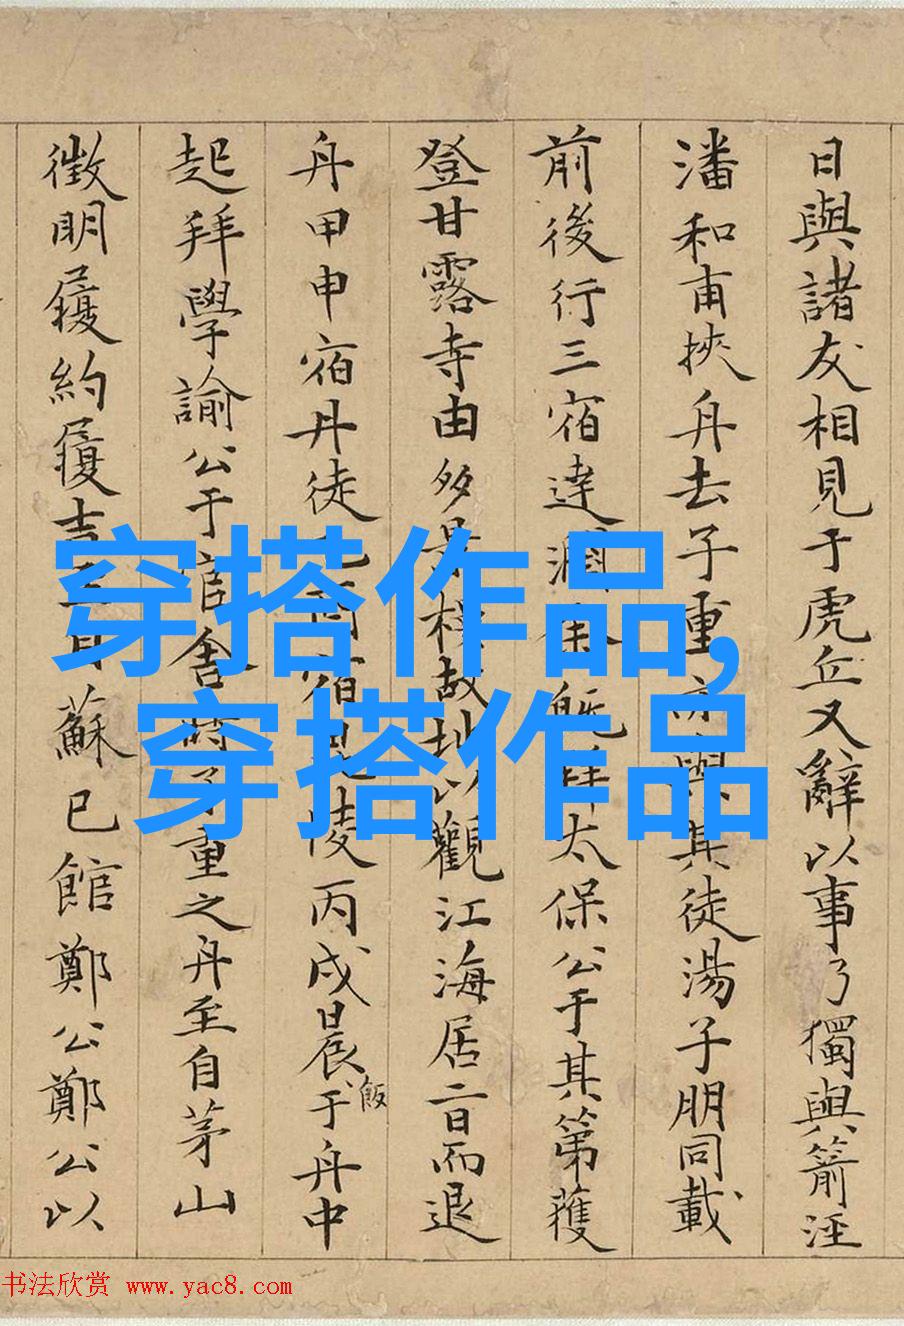 日與諸友相見于虎丘又辭以事乃獨與箭涇
潘和甫挾舟去子重亦與其徒湯子朋同載
前後行三宿達潤州既拜太保公于其第獲
登甘露寺由多景樓故址以觀江海居二日而退
舟甲申宿丹徒乙酉宿毘陵丙戌晨飯于舟中
起拜學諭公于官舍時子重之舟至自茅山
徵明履約履吉至自蘇已館鄭公鄭公以
穿搭作品,
穿搭作品
书法欣赏 www.yac8.com